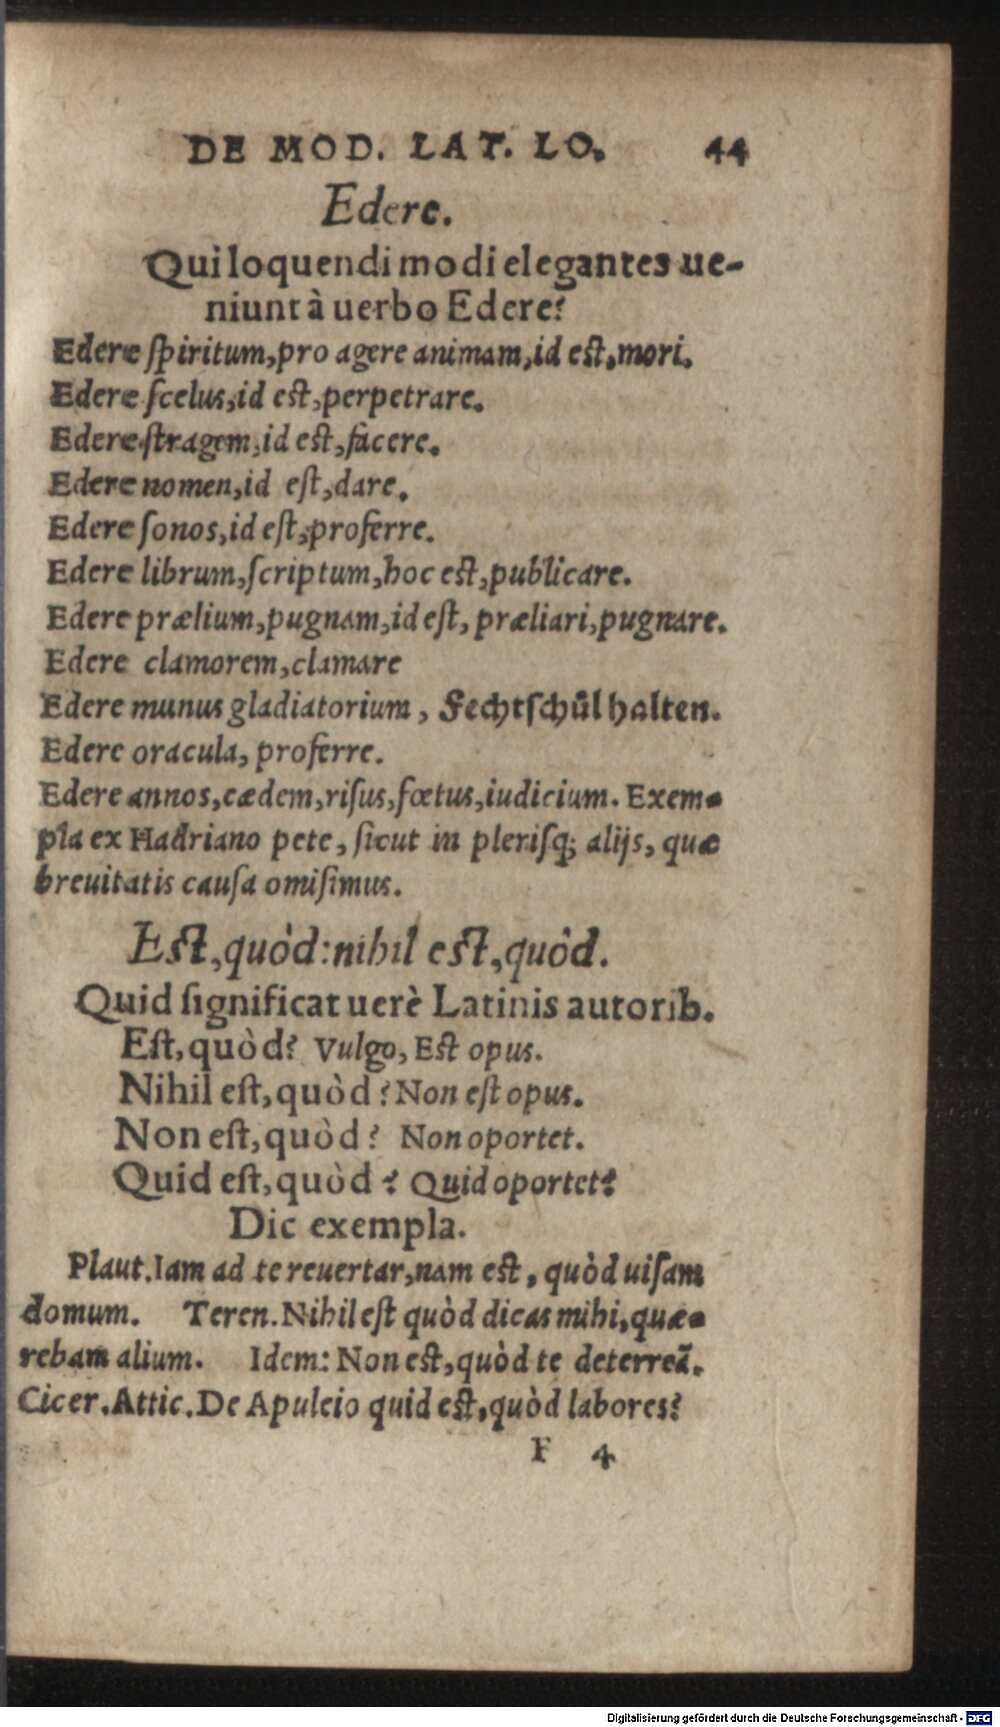 DE MOD. LAT. LO. 44
Edere.
Qui loquendi modi elegantes ue-
niunt à uerbo Edere?
Edere ſpiritum, pro agere animam, id eſt, mori.
Edere ſcelus, id eſt, perpetrare.
Edere ſtragem, id eſt, facere.
Edere nomen, id eſt, dare.
Edere ſonos, id eſt, proferre.
Edere librum, ſcriptum, hoc eſt, publicare.
Edere prælium, pugnam, id eſt, præliari, pugnare.
Edere clamorem, clamare
Edere munus gladiatorium, Fechtſchůl halten.
Edere oracula, proferre.
Edere annos, cædem, riſus, fœtus, iudicium. Exem-
pla ex Hadriano pete, ſicut in pleriſq; alijs, quæ
breuitatis cauſa omiſimus.
Eſt, quòd: nihil eſt, quòd.
Quid ſignificat uerè Latinis autorib.
Eſt, quòd? Vulgo, Eſt opus.
Nihil eſt, quòd? Non eſt opus.
Non eſt, quòd? Non oportet.
Quid eſt, quòd? Quid oportet?
Dic exempla.
Plaut. Iam ad te reuertar, nam eſt, quòd uiſam
domum. Teren. Nihil eſt quòd dicas mihi, quæ-
rebam alium. Idem: Non eſt, quòd te deterreā.
Cicer. Attic. De Apuleio quid eſt, quòd labores?
F 4
Digitalisierung gefördert durch die Deutsche Forschungsgemeinschaft - DFG